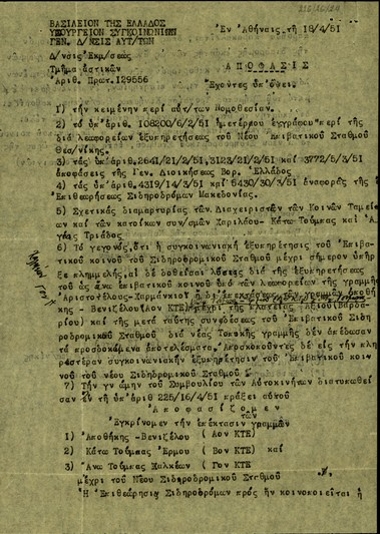 ΒΑΣΙΛΕΙΟΝ ΤΗΣ ΕΛΛΑΔΟΣ
ΥΠΟΥΡΓΕΙΟΝ ΣΥΓΚΟΙΝΩΝΙΩΝ
ΓΕΝ. Δ/ΝΣΙΣ ΑΥΤ/ΤΩΝ
Ἐν Ἀθήναις τῇ 18/4/51
Δ/νσις Ἐκμ/σεως
Τμῆμα ἀστικῶν
Ἀριθ. Πρωτ. 129556
Α Π Ο Φ Α Σ Ι Σ
Ἔχοντες ὑπ' ὄψει.
1) τήν κειμένην περί αὐτ/των Νομοθεσίαν.
2) τό ὑπ' ἀριθ. 108200/6/2/51 ἡμέτερον ἔγγραφον περί τῆς
διά λεωφορείων ἐξυπηρετήσεως τοῦ Νέου Ἐπιβατικοῦ Σταθμοῦ
Θεσ/νίκης.
3) τάς ὑπ' ἀριθ. 2641/21/2/51, 3123/21/2/51 καί 3772/5/3/51
ἀποφάσεις τῆς Γεν. Διοικήσεως Βορ. Ἑλλάδος
4) τάς ὑπ' ἀριθ. 4319/14/3/51 καί 5430/30/3/51 ἀναφοράς τῆς
Ἐπιθεωρήσεως Σιδηροδρόμων Μακεδονίας.
5) Σχετικάς διαμαρτυρίας τῶν Διαχειριστῶν τῶν Κοινῶν Ταμεί
ων καί τῶν κατοίκων συν/σμῶν Χαριλάου- Κάτω Τούμπας καί Ἁ
γίας Τριάδος
6) Τό γεγονός, ὅτι ἡ συγκοινωνιακή ἐξυπηρέτησις τοῦ Ἐπιβα-
τικοῦ κοινοῦ τοῦ Σιδηροδρομικοῦ Σταθμοῦ μέχρι σήμερον ὑπῆρ
ξε πλημμελής, αἱ δέ δοθεῖσαι λύσεις διά τῆς ἐξυπηρετήσεως
τοῦ ὡς ἄνω ἐπιβατικοῦ κοινοῦ ὑπό τῶν λεωφορείων τῆς γραμμῆς
Ἀριστοτέλους-Χαρμάνκιοϊ
- Βενιζέλου (Αον ΚΤΕ) μέχρι τῆς Πλατείας
ρίου) καί τῆς μετά ταῦτης συνδέσεως τοῦ Ἐπιβατικοῦ Σιδη
ροδρομικοῦ Σταθμοῦ διά νέας Τοπικῆς γραμμῆς δέν ἀπέδωσαν
τά προσδοκώμενα ἀποτελέσματα. Ἀποσκοποῦντες δέ εἰς τήν πλη
ρέστεραν συγκοινωνιακήν ἐξυπηρέτησιν τοῦ Ἐπιβατικοῦ κοι-
νοῦ τοῦ νέου Σιδηροδρομικοῦ Σταθμοῦ.
7) Τήν γνώμην τοῦ Συμβουλίου τῶν Αὐτοκινήτων διατυπωθεῖ
σαν ἐν τῇ ὑπ' ἀριθ. 225/16/4/51 πράξει αὐτοῦ
Ἀ π ο φ α σ ί ζ ο μ ε ν
Ἐγκρίνομεν τήν ἐπέκτασιν τῶν γραμμῶν
1) Ἀποθήκης -Βενιζέλου ( Αον ΚΤΕ)
2) Κάτω Τούμπας Ἑρμοῦ ( Βον ΚΤΕ) καί
3) Ἄνω Τούμπας Χαλκέων ( Γον ΚΤΕ
μέχρι τοῦ Νέου Σιδηροδρομικοῦ Σταθμοῦ
Ἡ Ἐπιθεώρησις Σιδηροδρόμων πρός ἥν κοινοποιεῖται ἡ